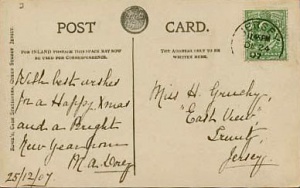 POST CARD.
FOR INLAND POSTAGE THIS SPACE MAY NOW
BE USED FOR CORRESPONDENCE.
THE ADDRESS ONLY TO BE
WRITTEN HERE.
JERSEY
DE 24
07
With best wishes
for a Happy Xmas
and a Bright
New Year from
M. A. Dorey
25/12/07
Miss H. Gruchy,
"East View"
Jersey.